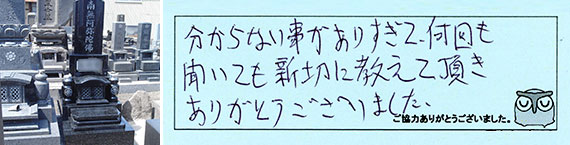 南無阿弥陀佛
分からない事がありすぎて、何回も
聞いても新切に教えて頂き
ありがとうございました。
ご協力ありがとうございました。